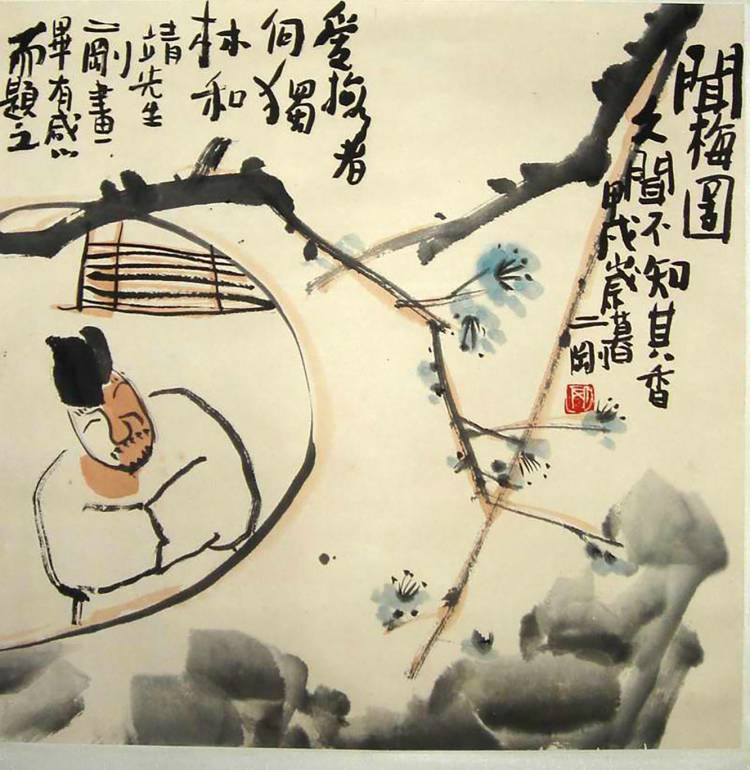 聞梅圖
久聞不知其香
甲戌歲暮
二岡
愛梅者
何獨
林和
靖先生
二剛畫
畢有感
而題之